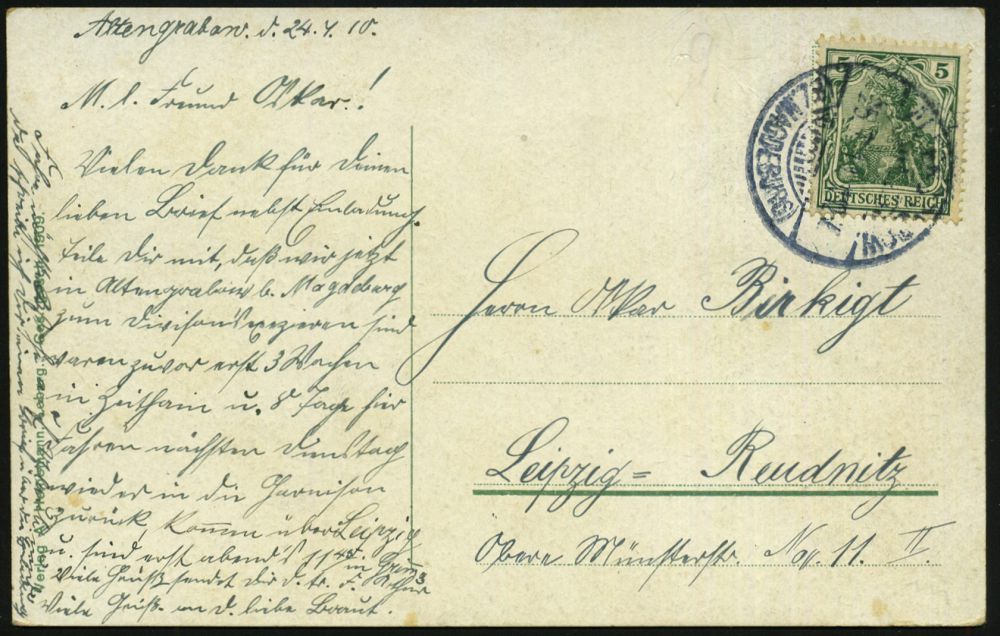 Altengrabow. d. 24.7.10.
M. l. Freund Oskar!
Vielen Dank für Deinen
lieben Brief nebst Einladung.
Teile Dir mit, daß wir jetzt
in Altengrabow b. Magdeburg
zum Divisionsexerzieren sind
waren zuvor erst 3 Wochen
in Zeithain u. 8 Tage hier
Fahren nächsten Dienstag
wieder in die Garnison
zurück, kommen über Leipzig
u. sind erst abends 11 45 in
Viele Grüße sendet Dir d. tr. F.
Viele Grüße an D. liebe Braut.
5 5
DEUTSCHES REICH
Herrn Oskar Birkigt
Leipzig = Reudnitz
Obere Münsterstr. No. 11. II.